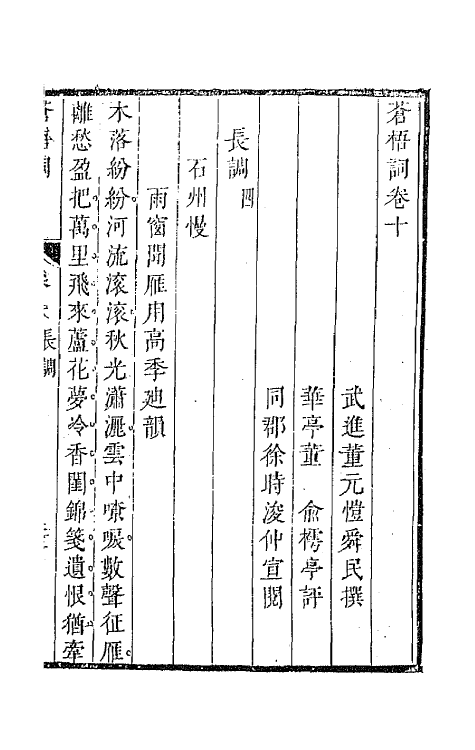 蒼梧詞卷十
武進董元愷舜民撰
華亭董　俞樗亭評
同郡徐時浚仲宣閱
長調四
石州慢
雨窗聞雁用高季迪韻
木落紛紛。河流滚滚。秋光瀟灑。雲中嘹喨。數聲征雁。
離愁盈把。萬里飛來。蘆花夢冷。香閨錦箋。遺恨猶牽
蒼梧詞
長調